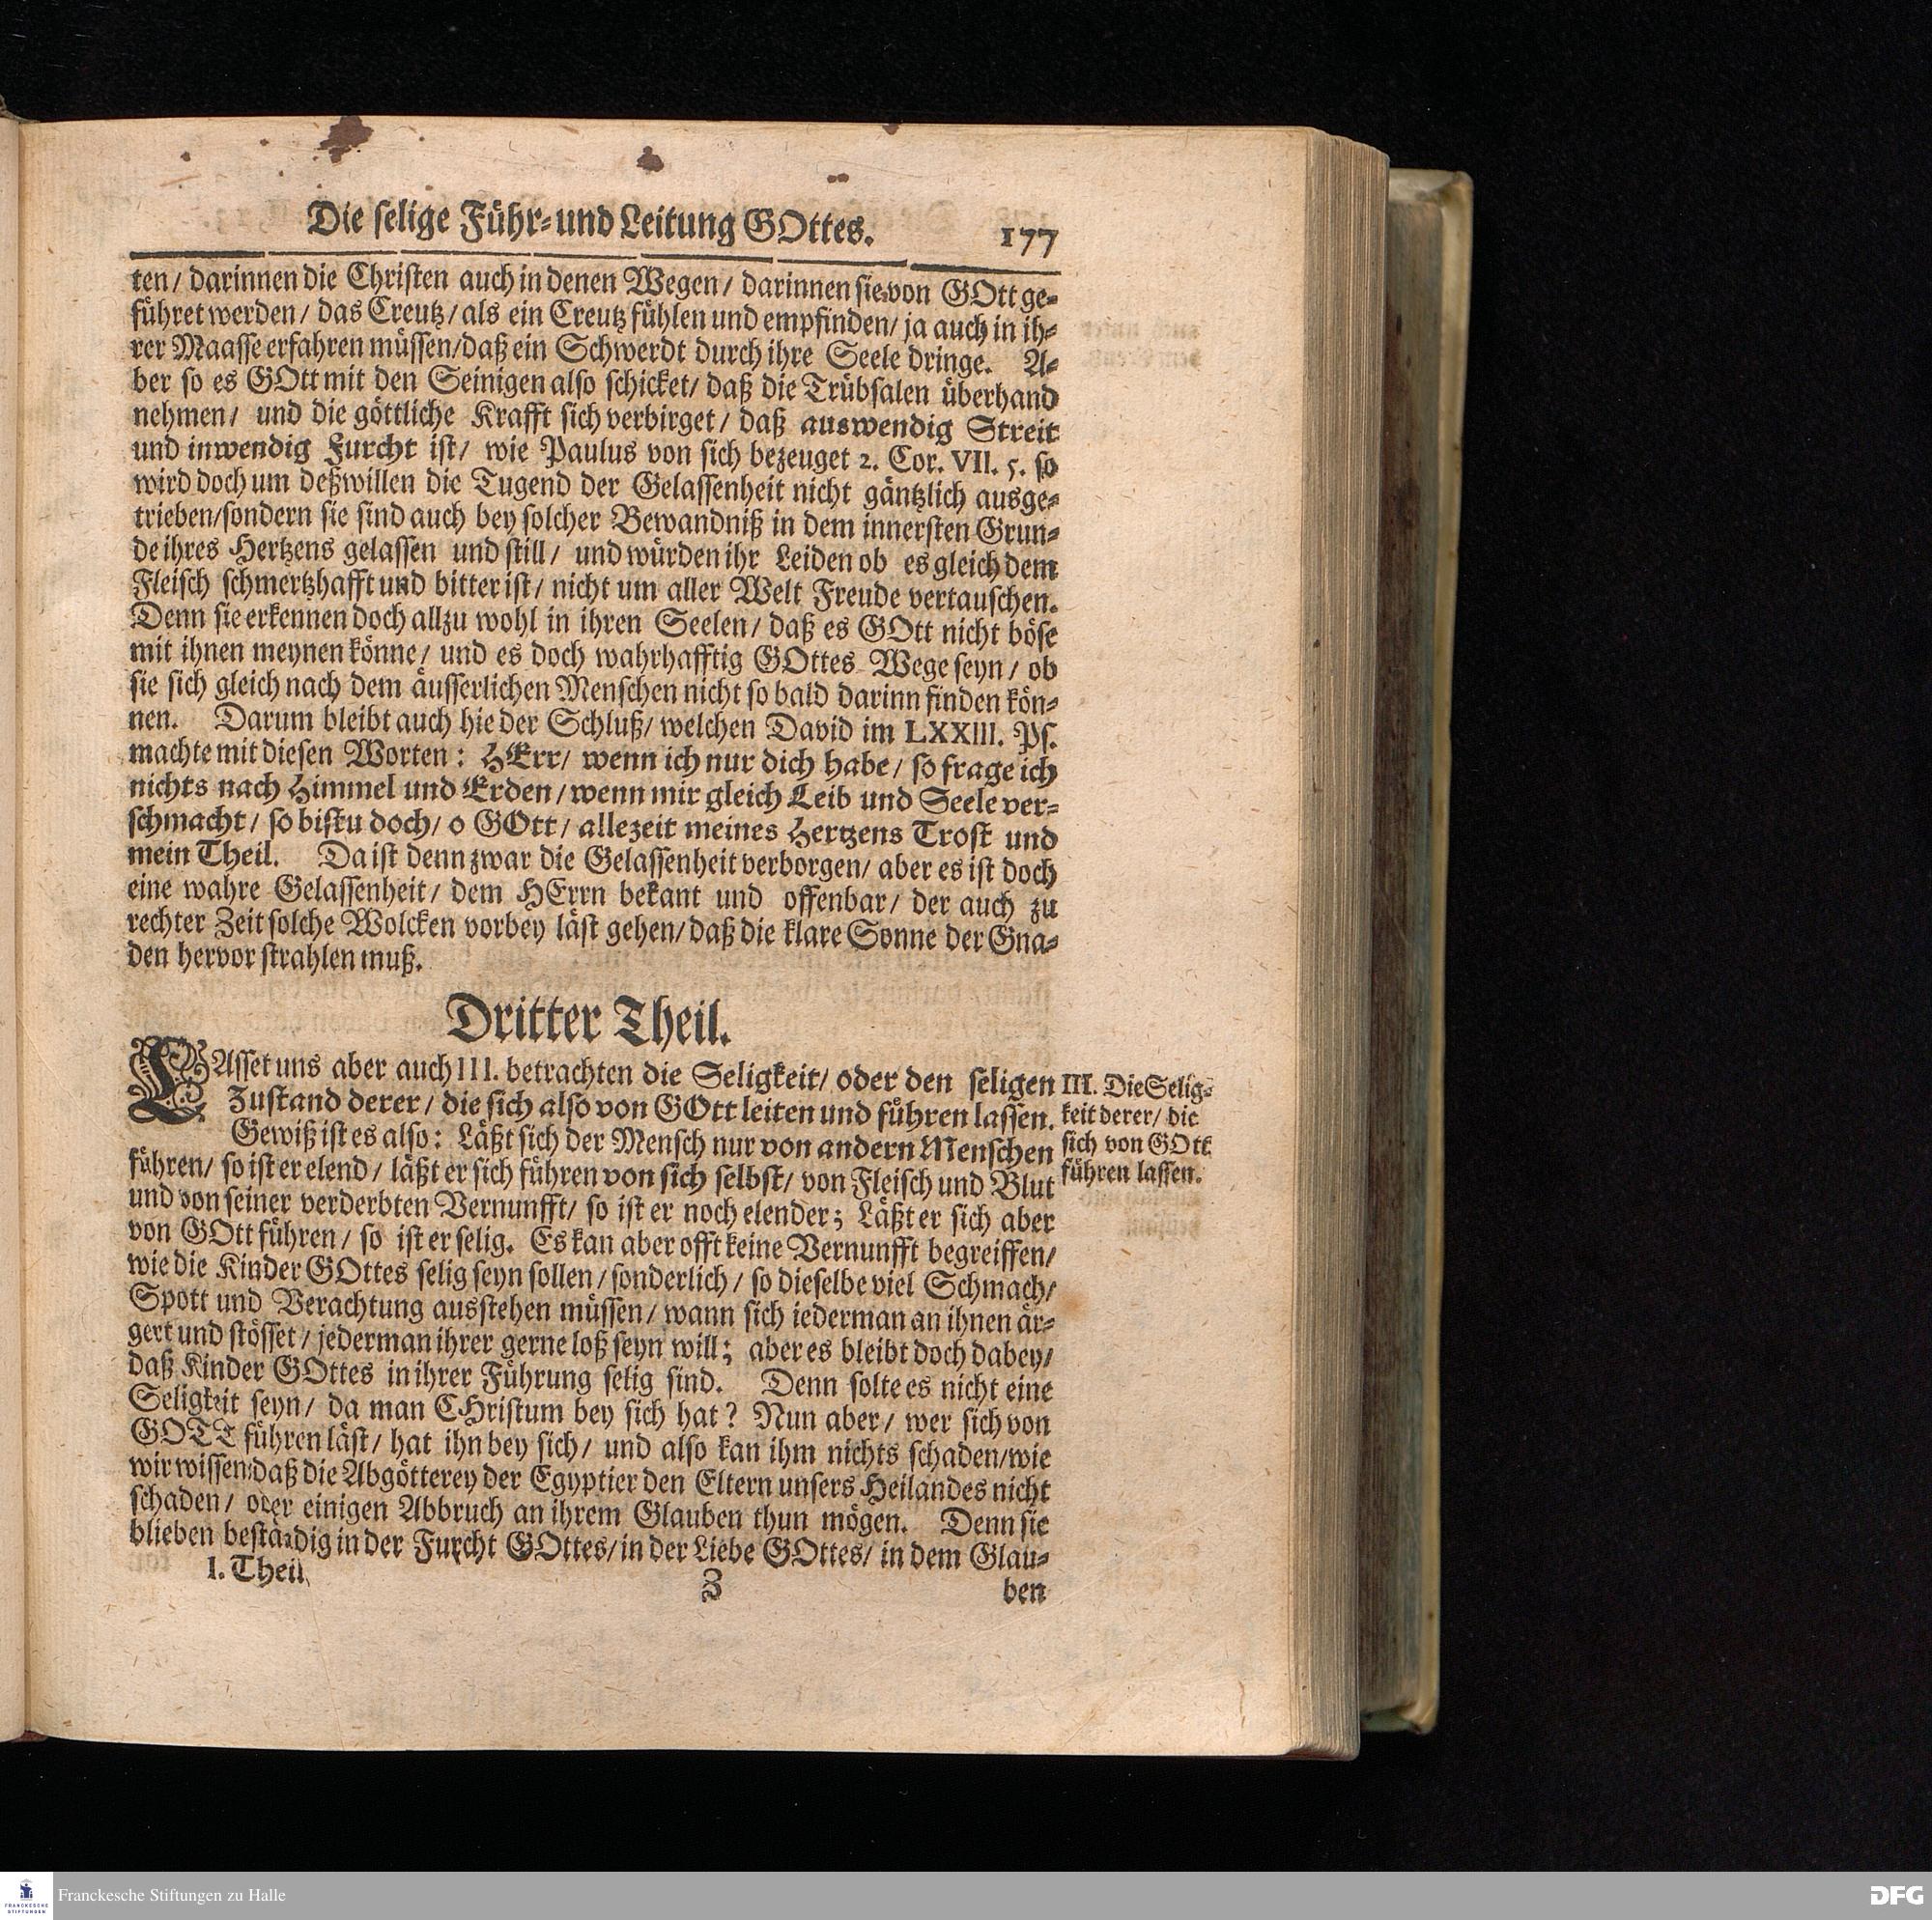 Die selige Führ- und Leitung GOttes. 177
ten/ darinnen die Christen auch in denen Wegen/ darinnen sie von GOtt ge-
führet werden/ das Creutz/ als ein Creutz fühlen und empfinden/ ja auch in ih-
rer Maasse erfahren müssen/ daß ein Schwerdt durch ihre Seele dringe. A-
ber so es GOtt mit den Seinigen also schicket/ daß die Trübsalen überhand
nehmen/ und die göttliche Krafft sich verbirget/ daß auswendig Streit
und inwendig Furcht ist/ wie Paulus von sich bezeuget 2. Cor. VII. 5. so
wird doch um deßwillen die Tugend der Gelassenheit nicht gäntzlich ausge-
trieben/ sondern sie sind auch bey solcher Bewandniß in dem innersten Grun-
de ihres Hertzens gelassen und still/ und würden ihr Leiden ob es gleich dem
Fleisch schmertzhafft und bitter ist/ nicht um aller Welt Freude vertauschen.
Denn sie erkennen doch allzu wohl in ihren Seelen/ daß es GOtt nicht böse
mit ihnen meynen könne/ und es doch wahrhafftig GOttes Wege seyn/ ob
sie sich gleich nach dem äusserlichen Menschen nicht so bald darinn finden kön-
nen. Darum bleibt auch hie der Schluß/ welchen David im LXXIII. Ps.
machte mit diesen Worten: HErr/ wenn ich nur dich habe/ so frage ich
nichts nach Himmel und Erden/ wenn mir gleich Leib und Seele ver-
schmacht/ so bistu doch/ o GOtt/ allezeit meines Hertzens Trost und
mein Theil. Da ist denn zwar die Gelassenheit verborgen/ aber es ist doch
eine wahre Gelassenheit/ dem HErrn bekant und offenbar/ der auch zu
rechter Zeit solche Wolcken vorbey läst gehen/ daß die klare Sonne der Gna-
den hervor strahlen muß.
Dritter Theil.
LAsset uns aber auch III. betrachten die Seligkeit/ oder den seligen
Zustand derer/ die sich also von GOtt leiten und führen lassen.
Gewiß ist es also: Läßt sich der Mensch nur von andern Menschen
führen/ so ist er elend/ läßt er sich führen von sich selbst/ von Fleisch und Blut
und von seiner verderbten Vernunfft/ so ist er noch elender; Läßt er sich aber
von GOtt führen/ so ist er selig. Es kan aber offt keine Vernunfft begreiffen/
wie die Kinder GOttes selig seyn sollen/ sonderlich/ so dieselbe viel Schmach/
Spott und Verachtung ausstehen müssen/ wann sich iederman an ihnen är-
gert und stösset/ jederman ihrer gerne loß seyn will; aber es bleibt doch dabey/
daß Kinder GOttes in ihrer Führung selig sind. Denn solte es nicht eine
Seligkeit seyn/ da man CHristum bey sich hat? Nun aber/ wer sich von
GOTT führen läst/ hat ihn bey sich/ und also kan ihm nichts schaden/ wie
wir wissen/ daß die Abgötterey der Egyptier den Eltern unsers Heilandes nicht
schaden/ oder einigen Abbruch an ihrem Glauben thun mögen. Denn sie
blieben beständig in der Furcht GOttes/ in der Liebe GOttes/ in dem Glau-
I. Theil. Z ben
III. Die Selig-
keit derer/ die
sich von GOtt
führen lassen.
Franckesche Stiftungen zu Halle
FRANCKESCHE
STIFTUNGEN
DFG